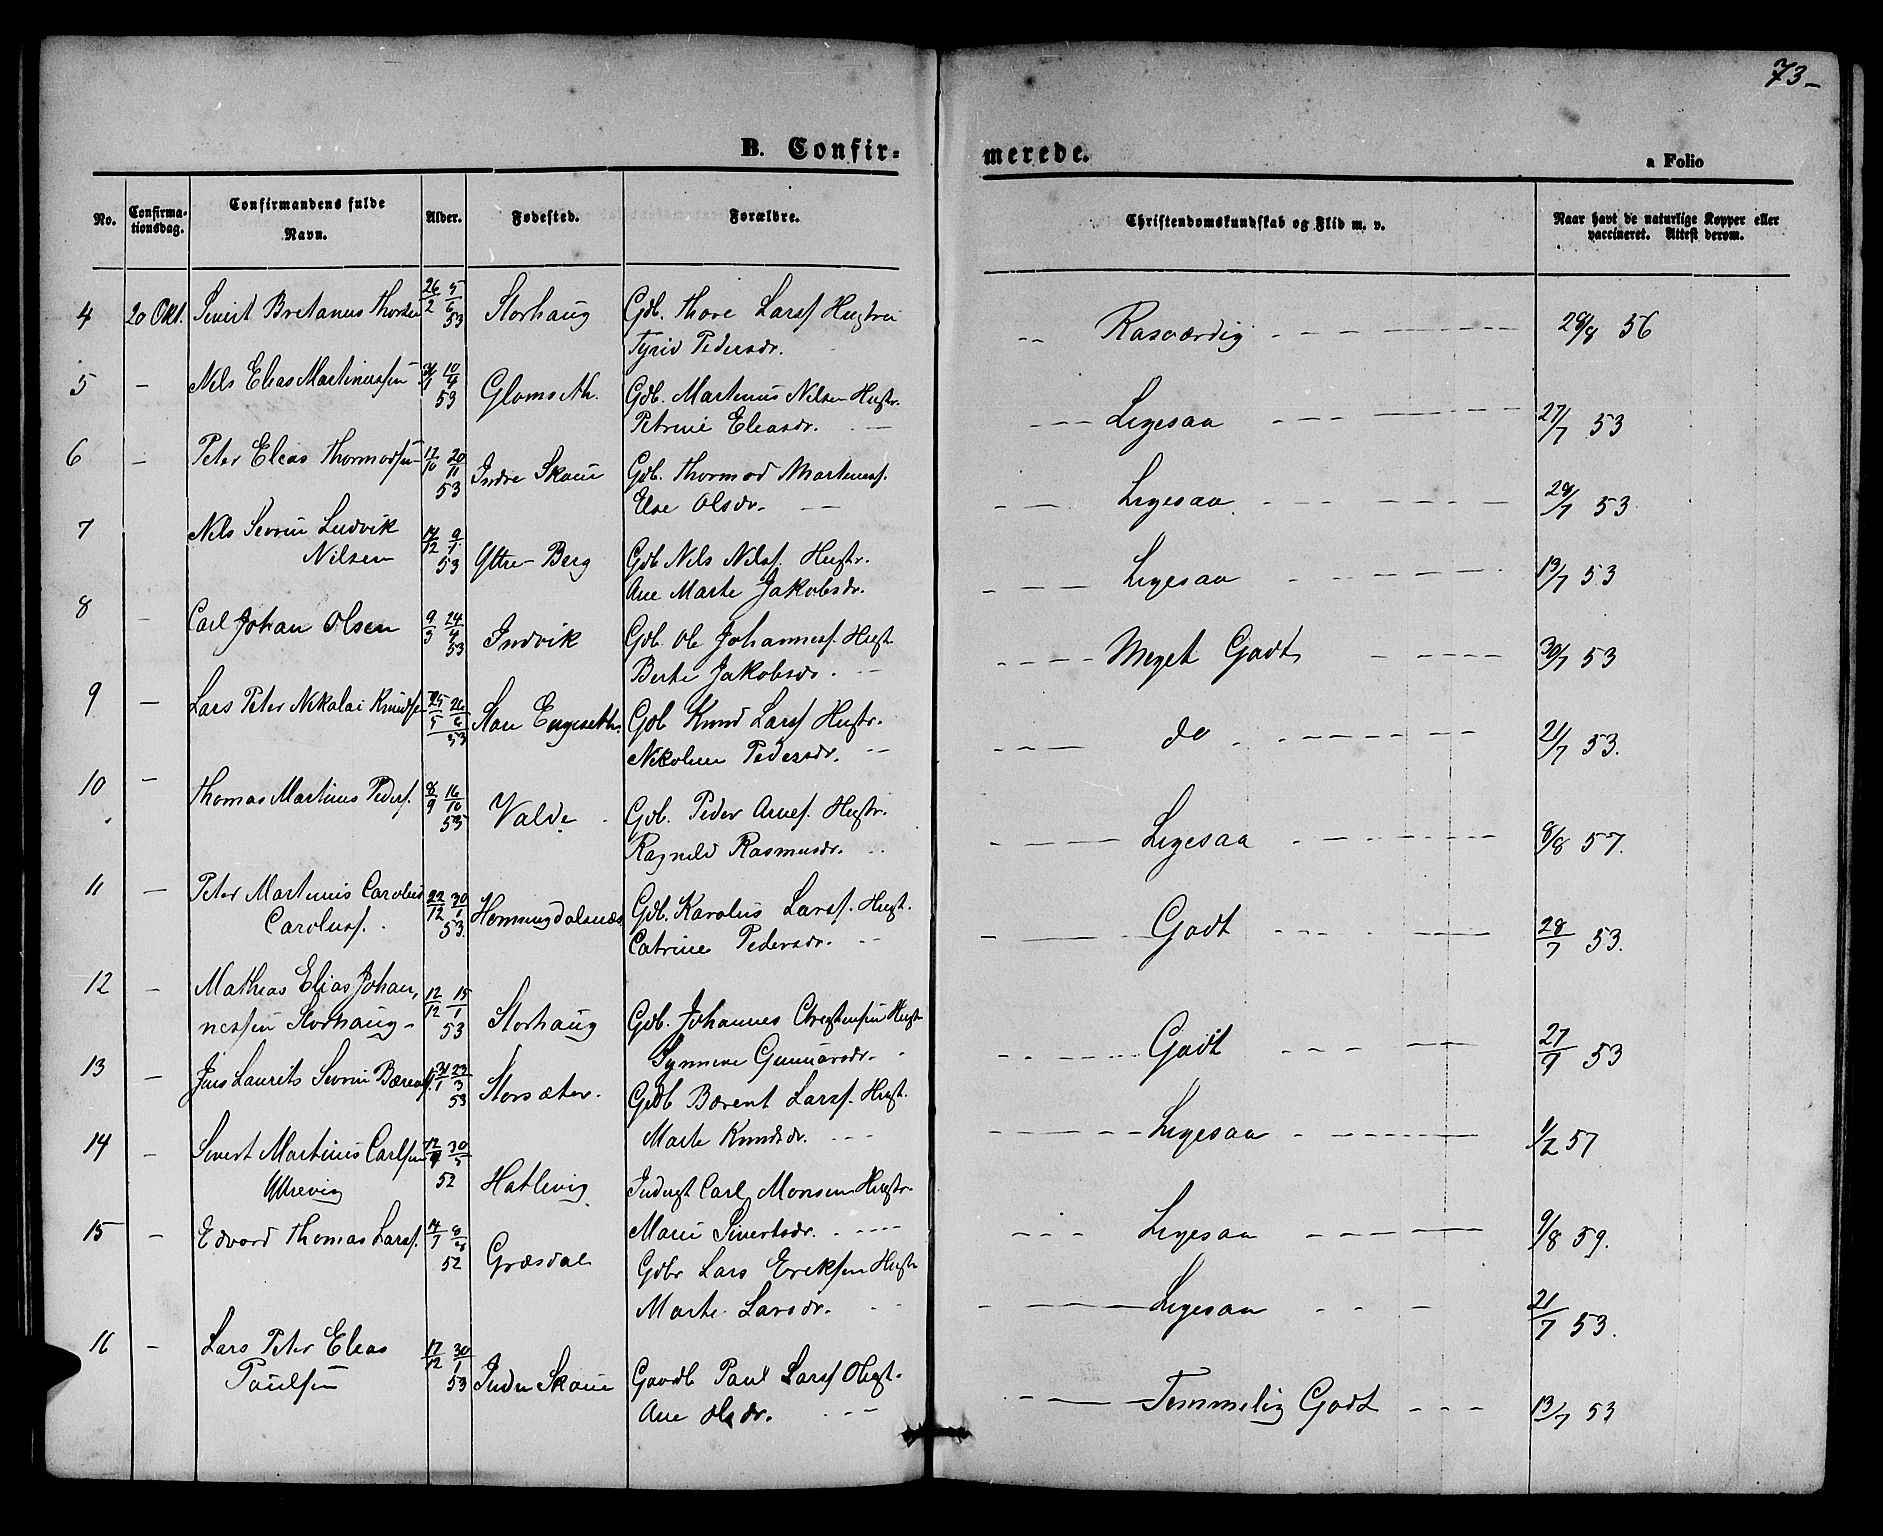 73-
B. Confir-
merede.
a Folio
No.
Confirma-
tionsdag.
Confirmandens fulde
Navn.
Alder.
Fødested.
Forældre.
Christendomskundskab og Flid m. v.
Naar havt de naturlige Kopper eller
vaccineret. Attest derom.
4 20 Okt. Sivert Bretanus Thorsen 26/2 5/6 53 Storhaug Gdb. Thore Larsf Hustru
Tyrid Pedersdr.
Rosværdig 28/8 56
5 - Nils Elias Martinussen 31/1 10/4 53 Glomseth. Gdb. Martinus Nilsen Hustr.
Petrine Eleasdr.
Ligesaa 27/7 53
6 - Peter Eleas Thormodsen 12/10 20/11 53 Indre Skaue Gdb. Thormod Martinusf.
Else Olsdr.
Ligesaa 28/7 53
7 Nils Sevrin Ludvik
Nilsen 17/12 9/1 53 Yttre-Berg Gdb Nils Nilsf. Hustr.
Ane Marte Jakobsdr.
Ligesaa 13/7 53
8 - Carl Johan Olsen 9/3 24/4 53 Indvik Gdb. Ole Johannesf. Hust
Berte Jakobsdr.
Meget Godt 30/7 53
9 - Lars Peter Nikolai Knudsen 25/5 26/6 53 Stou Engeseth. Gdb Knud Larsf Hustr.
Nikoline Pedersdr.
do 21/7 53.
10 - Thomas Martinus Pedersf. 8/9 16/10 53 Valde Gdb. Peder Arnef. Hustr.
Ragnild Rasmusdr.
Ligesaa 8/8 57.
11 - Peter Martinus Carolus
Carolusf. 22/12 30/1 53. Honningdalsnæs Gdb. Karolus Larsf. Hust.
Catrine Pedersdr.
Godt 28/7 53.
12 - Mathias Elias Johan,
nessen Storhaug- 12/12 15/1 53 Storhaug Gdb. Johannes Christensen Hust
Synneve Gunnarsdr.
Godt 27/9 53
13 - Jens Laurits Sevrin Bærentsf. 31/1 23/3 53 Storsæter. Gdb Bærent Larsf. Hust.
Marte Knudsdr.
Ligesaa 1/2 57
14 - Sivert Martinus Carlsen
Yttrevig 30/5 52 Hatlevig Inderst Carl Monsen Hustr.
Marie Sivertsdr.
Ligesaa 9/8 59.
15 - Edvard Thomas Larsf. 52 Græsdal Gdbr Lars Eriksen Hustr
Marte Larsdr.
Ligesaa 21/7 53.
16 - Lars Peter Eleas
Paulsen 17/12 30/1 53 Indre Skaue Gaardb Paul Larsf Hust.
Ane Olsdr.
Temmelig Godt 13/7 53